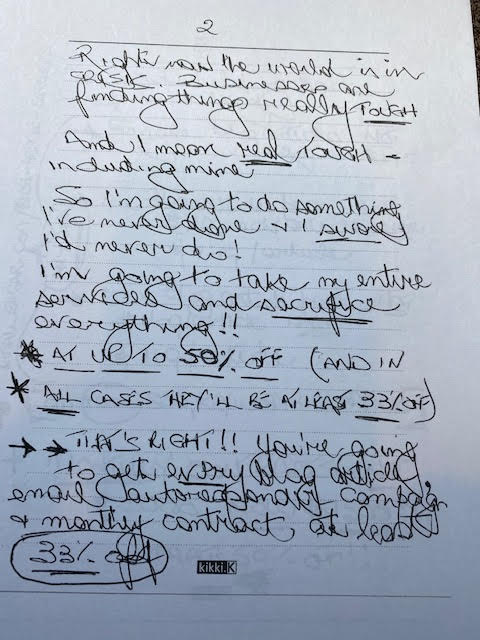 2
Right now the world is in
CRISIS. Businesses are
finding things really TOUGH
And I mean real TOUGH -
including mine
So I'm going to do something
I've never done + I swore
I'd never do!
I'm going to take my entire
services and sacrifice
everything!!
* AT UP TO 50% OFF (AND IN
* ALL CASES THEY'LL BE AT LEAST 33% OFF)
→ → THAT'S RIGHT!! You're going
to get every blog article,
email autoresponder campaign
+ monthly contract at least
33% off
kikki.K